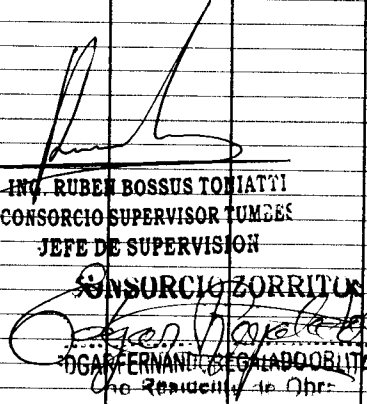 ING. RUBEN BOSSUS TONIATTI
CONSORCIO SUPERVISOR TUMBES
JEFE DE SUPERVISION
CONSORCIO ZORRITOS
EDGAR FERNANDO REGALADO OBLITAS
Ing Residente de Obra